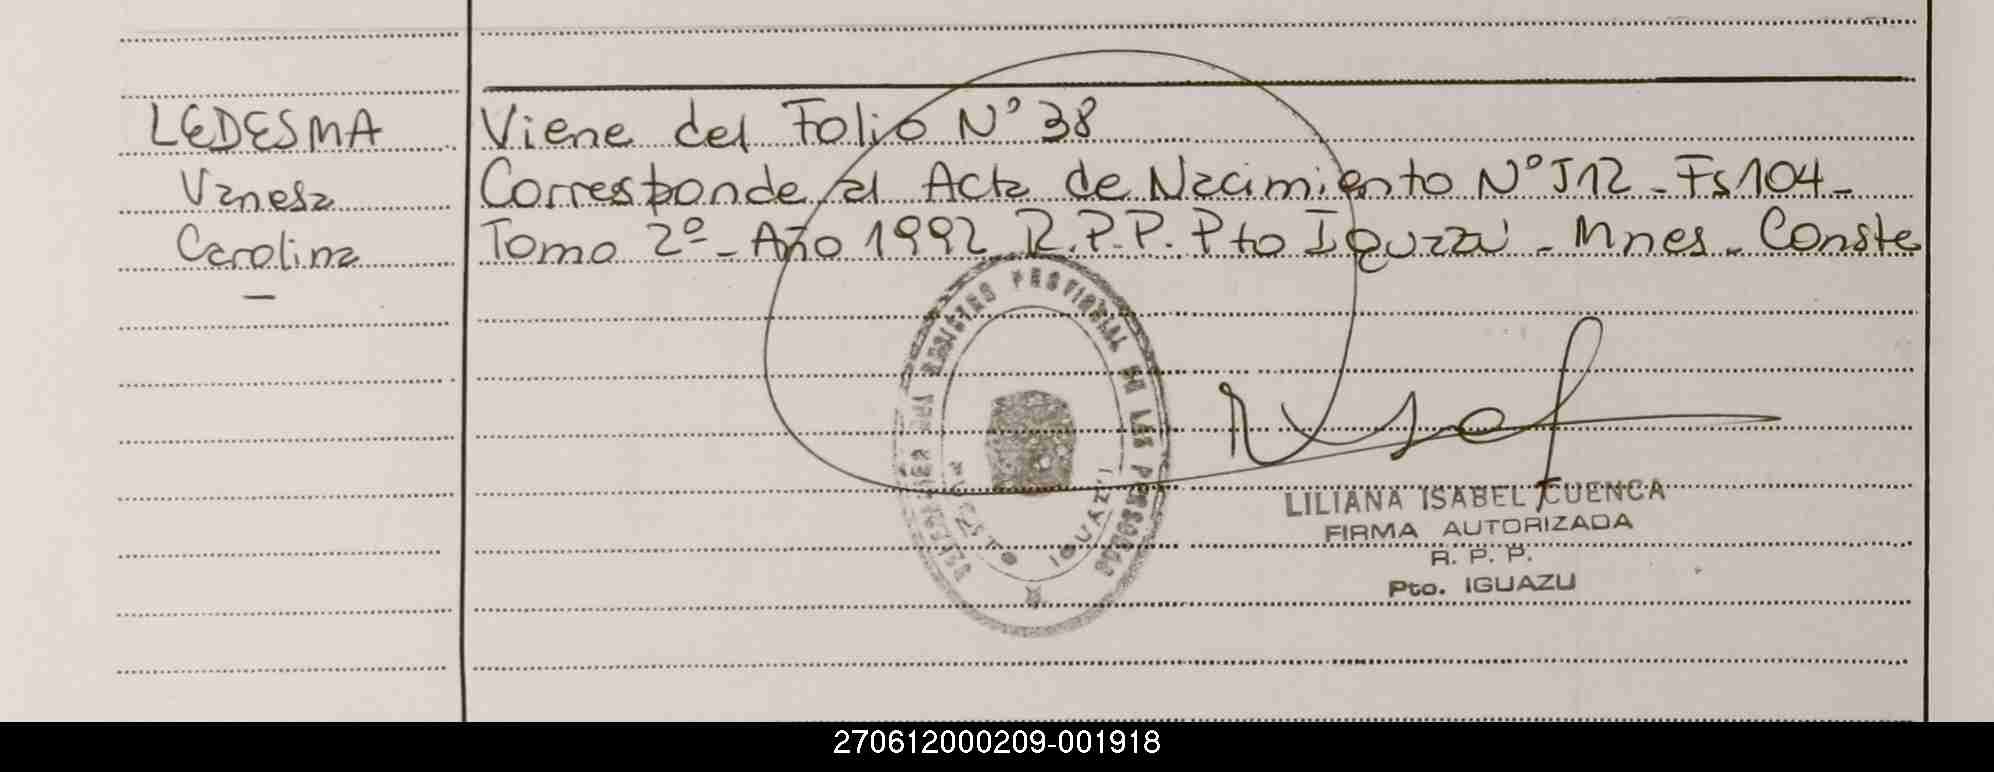 LEDESMA
Vanesa
Carolina
—
Viene del Folio N° 38
Corresponde al Acta de Nacimiento N° 512 - Fs 104 -
Tomo 2º - Año 1992 R.P.P. Pto Iguazú - Mnes - Conste
REGISTRO PROVINCIAL DE LAS PERSONAS
IGUAZU
LILIANA ISABEL CUENCA
FIRMA AUTORIZADA
R. P. P.
Pto. IGUAZU
270612000209-001918